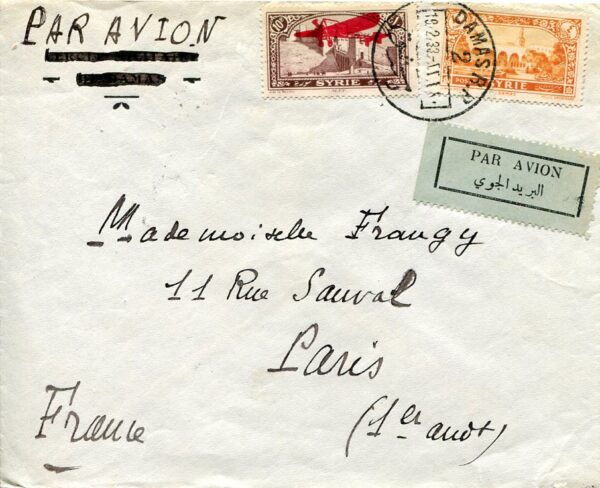 PAR AVION
10P
SYRIE
DAMAS R.P.
2
SYRIE
PAR AVION
البريد الجوي
Mademoiselle Frangy
11 Rue Sauval
Paris
(1er andt)
France